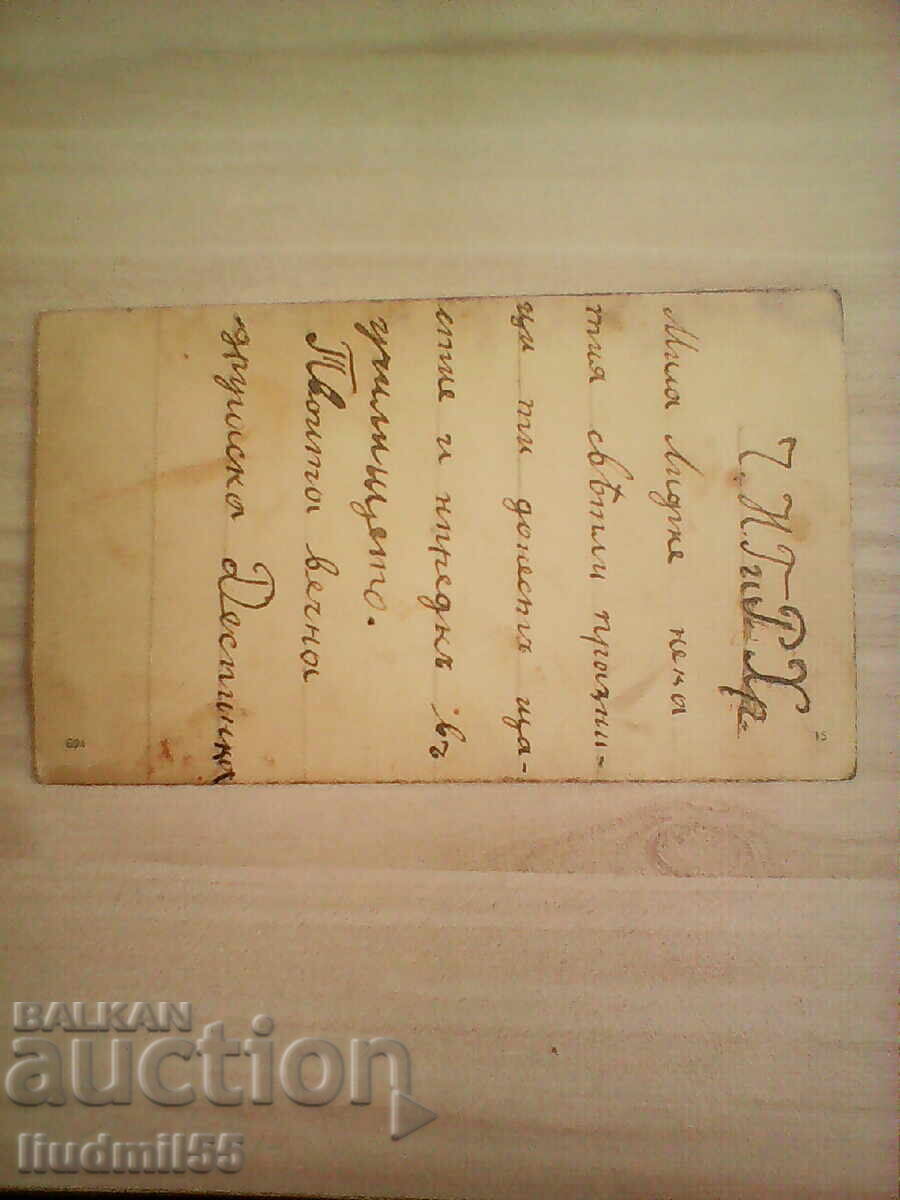 Ч.Н.Г. и Р.Хр.
Мила Лидке нека
тия свѣтли празни-
ци ти донесть ща-
стие и нпредкъ въ
училището.
Твоита вечна
другаска Деспинка
694
15
BALKAN
auction
liudmil55